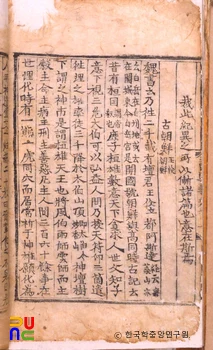 哉此紀異之所以慚諸篇也意在斯焉
古朝鮮 王儉朝鮮
魏書云乃往二千載有壇君王儉立都阿斯達
開國號朝鮮與高同時古記云
昔有桓囯 謂帝釋也 庶子桓雄數意天下貪求人世父知子
意下視三危太伯可以弘益人間乃授天符印三箇遣
徃理之雄率徒三千降於太伯山頂 神壇樹
下謂之神市是謂桓雄天王也將風伯雨師雲師而主
穀主命主病主刑主善惡凡主人間三百六十餘事在
世理化時有一熊一虎同穴而居常祈于神雄願化爲
한국학중앙연구원